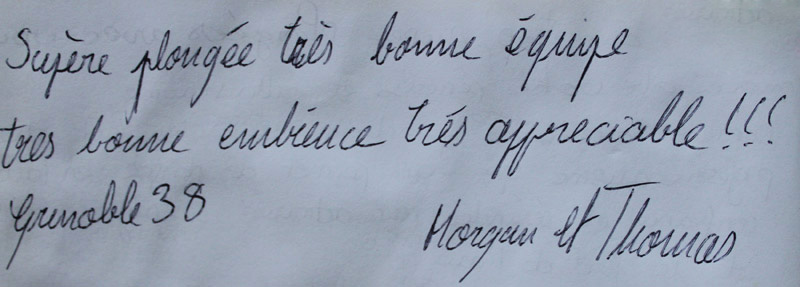 Supère plongée très bonne équipe
tres bonne embience très appreciable!!!
Grenoble 38
Morgan et Thomas